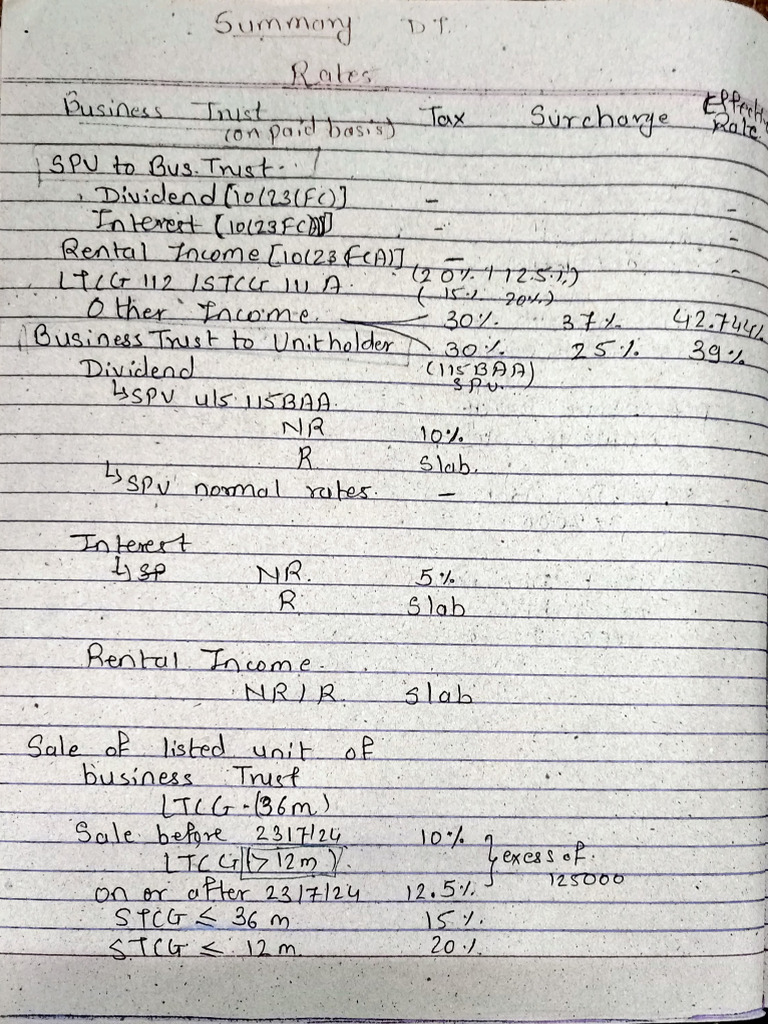 Summary D T.
Rates
Business Trust Tax Surcharge Effecti
(on paid basis) Rate
SPU to Bus. Trust..
Dividend [10(23(FC)] - -
Interest [10(23FC)] - -
Rental Income [10(23 FCA)] - -
LTCG 112 / STCG 111 A. (20% / 12.5%)
(15% 20%)
Other Income. 30% 37% 42.744%
Business Trust to Unitholder 30% 25% 39%
Dividend (115BAA)
↳SPV u/s 115BAA. SPV.
NR 10%
R Slab.
↳SPV normal rates. -
Interest
↳ SP NR. 5%
R Slab
Rental Income.
NR / R. Slab
Sale of listed unit of
business Trust
LTCG - (36m)
Sale before 23/7/24 10%
LTCG (> 12m) exess of.
on or after 23/7/24 12.5% 125000
STCG ≤ 36 m 15%
STCG ≤ 12 m 20%